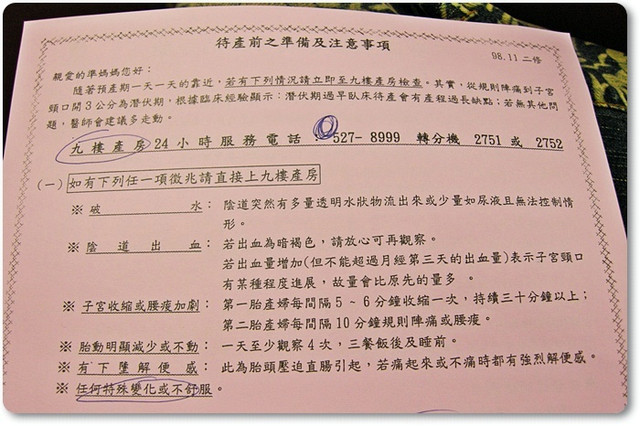 待產前之準備及注意事項
98.11 二修
親愛的準媽媽您好：
隨著預產期一天一天的靠近，若有下列情況請立即至九樓產房檢查。其實，從規則陣痛到子宮
頸口開3公分為潛伏期，根據臨床經驗顯示：潛伏期過早臥床待產會有產程過長缺點；若無其他問
題，醫師會建議多走動。
九樓產房24小時服務電話：527-8999 轉分機 2751 或 2752
(一) 如有下列任一項徵兆請直接上九樓產房
※ 破水：陰道突然有多量透明水狀物流出來或少量如尿液且無法控制情
形。
※ 陰道出血：若出血為暗褐色，請放心可再觀察。
若出血量增加(但不能超過月經第三天的出血量)表示子宮頸口
有某種程度進展，故量會比原先的量多 。
※ 子宮收縮或腰痠加劇：第一胎產婦每間隔5～6分鐘收縮一次，持續三十分鐘以上；
第二胎產婦每間隔10分鐘規則陣痛或腰痠。
※ 胎動明顯減少或不動：一天至少觀察4次，三餐飯後及睡前。
※ 有下墜解便感：此為胎頭壓迫直腸引起，若痛起來或不痛時都有強烈解便感。
※ 任何特殊變化或不舒服。